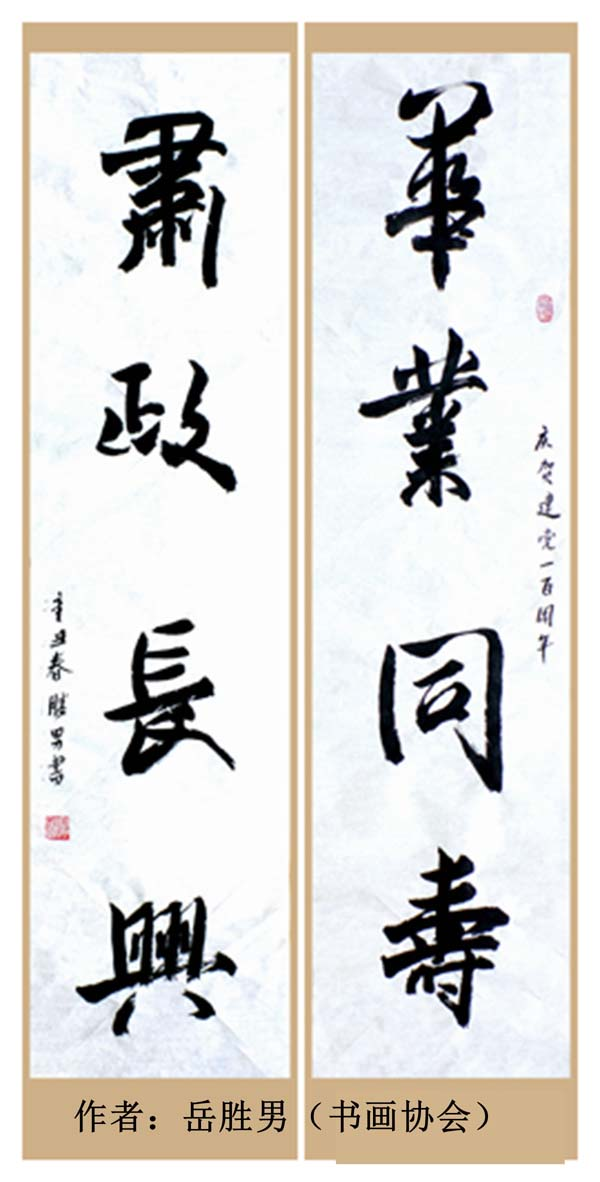 華業同壽
庆贺建党一百周年
肅政長興
辛丑春勝男書
作者：岳胜男（书画协会）